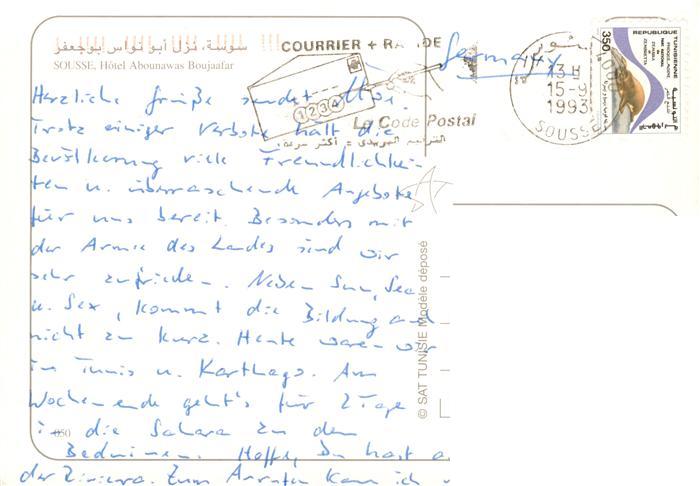 سوسة، نزل أبو نواس بوجعفر
SOUSSE, Hôtel Abounawas Boujaafar
COURRIER + RAPIDE
1234
Le Code Postal
Germany
13H
15-9
1993
SOUSSE
REPUBLIQUE TUNISIENNE
350
Herzliche Grüße sendet
Trotz einiger Verbote hält die
Bevölkerung viele Freundlichkei-
ten u. überraschende Angebote
für uns bereit. Besonders mit
der Armee des Landes sind wir
sehr zufrieden. Neben Sun, Sea
u. Sex, kommt die Bildung auch
nicht zu kurz. Heute waren wir
in Tunis u. Karthago. Am
Wochenende geht's für 2 Tage
in die Sahara zu den
Beduinen. Hoffe, Du hast a
der Riviera. Zum kann ich
© SAT TUNISIE Modèle déposé
050